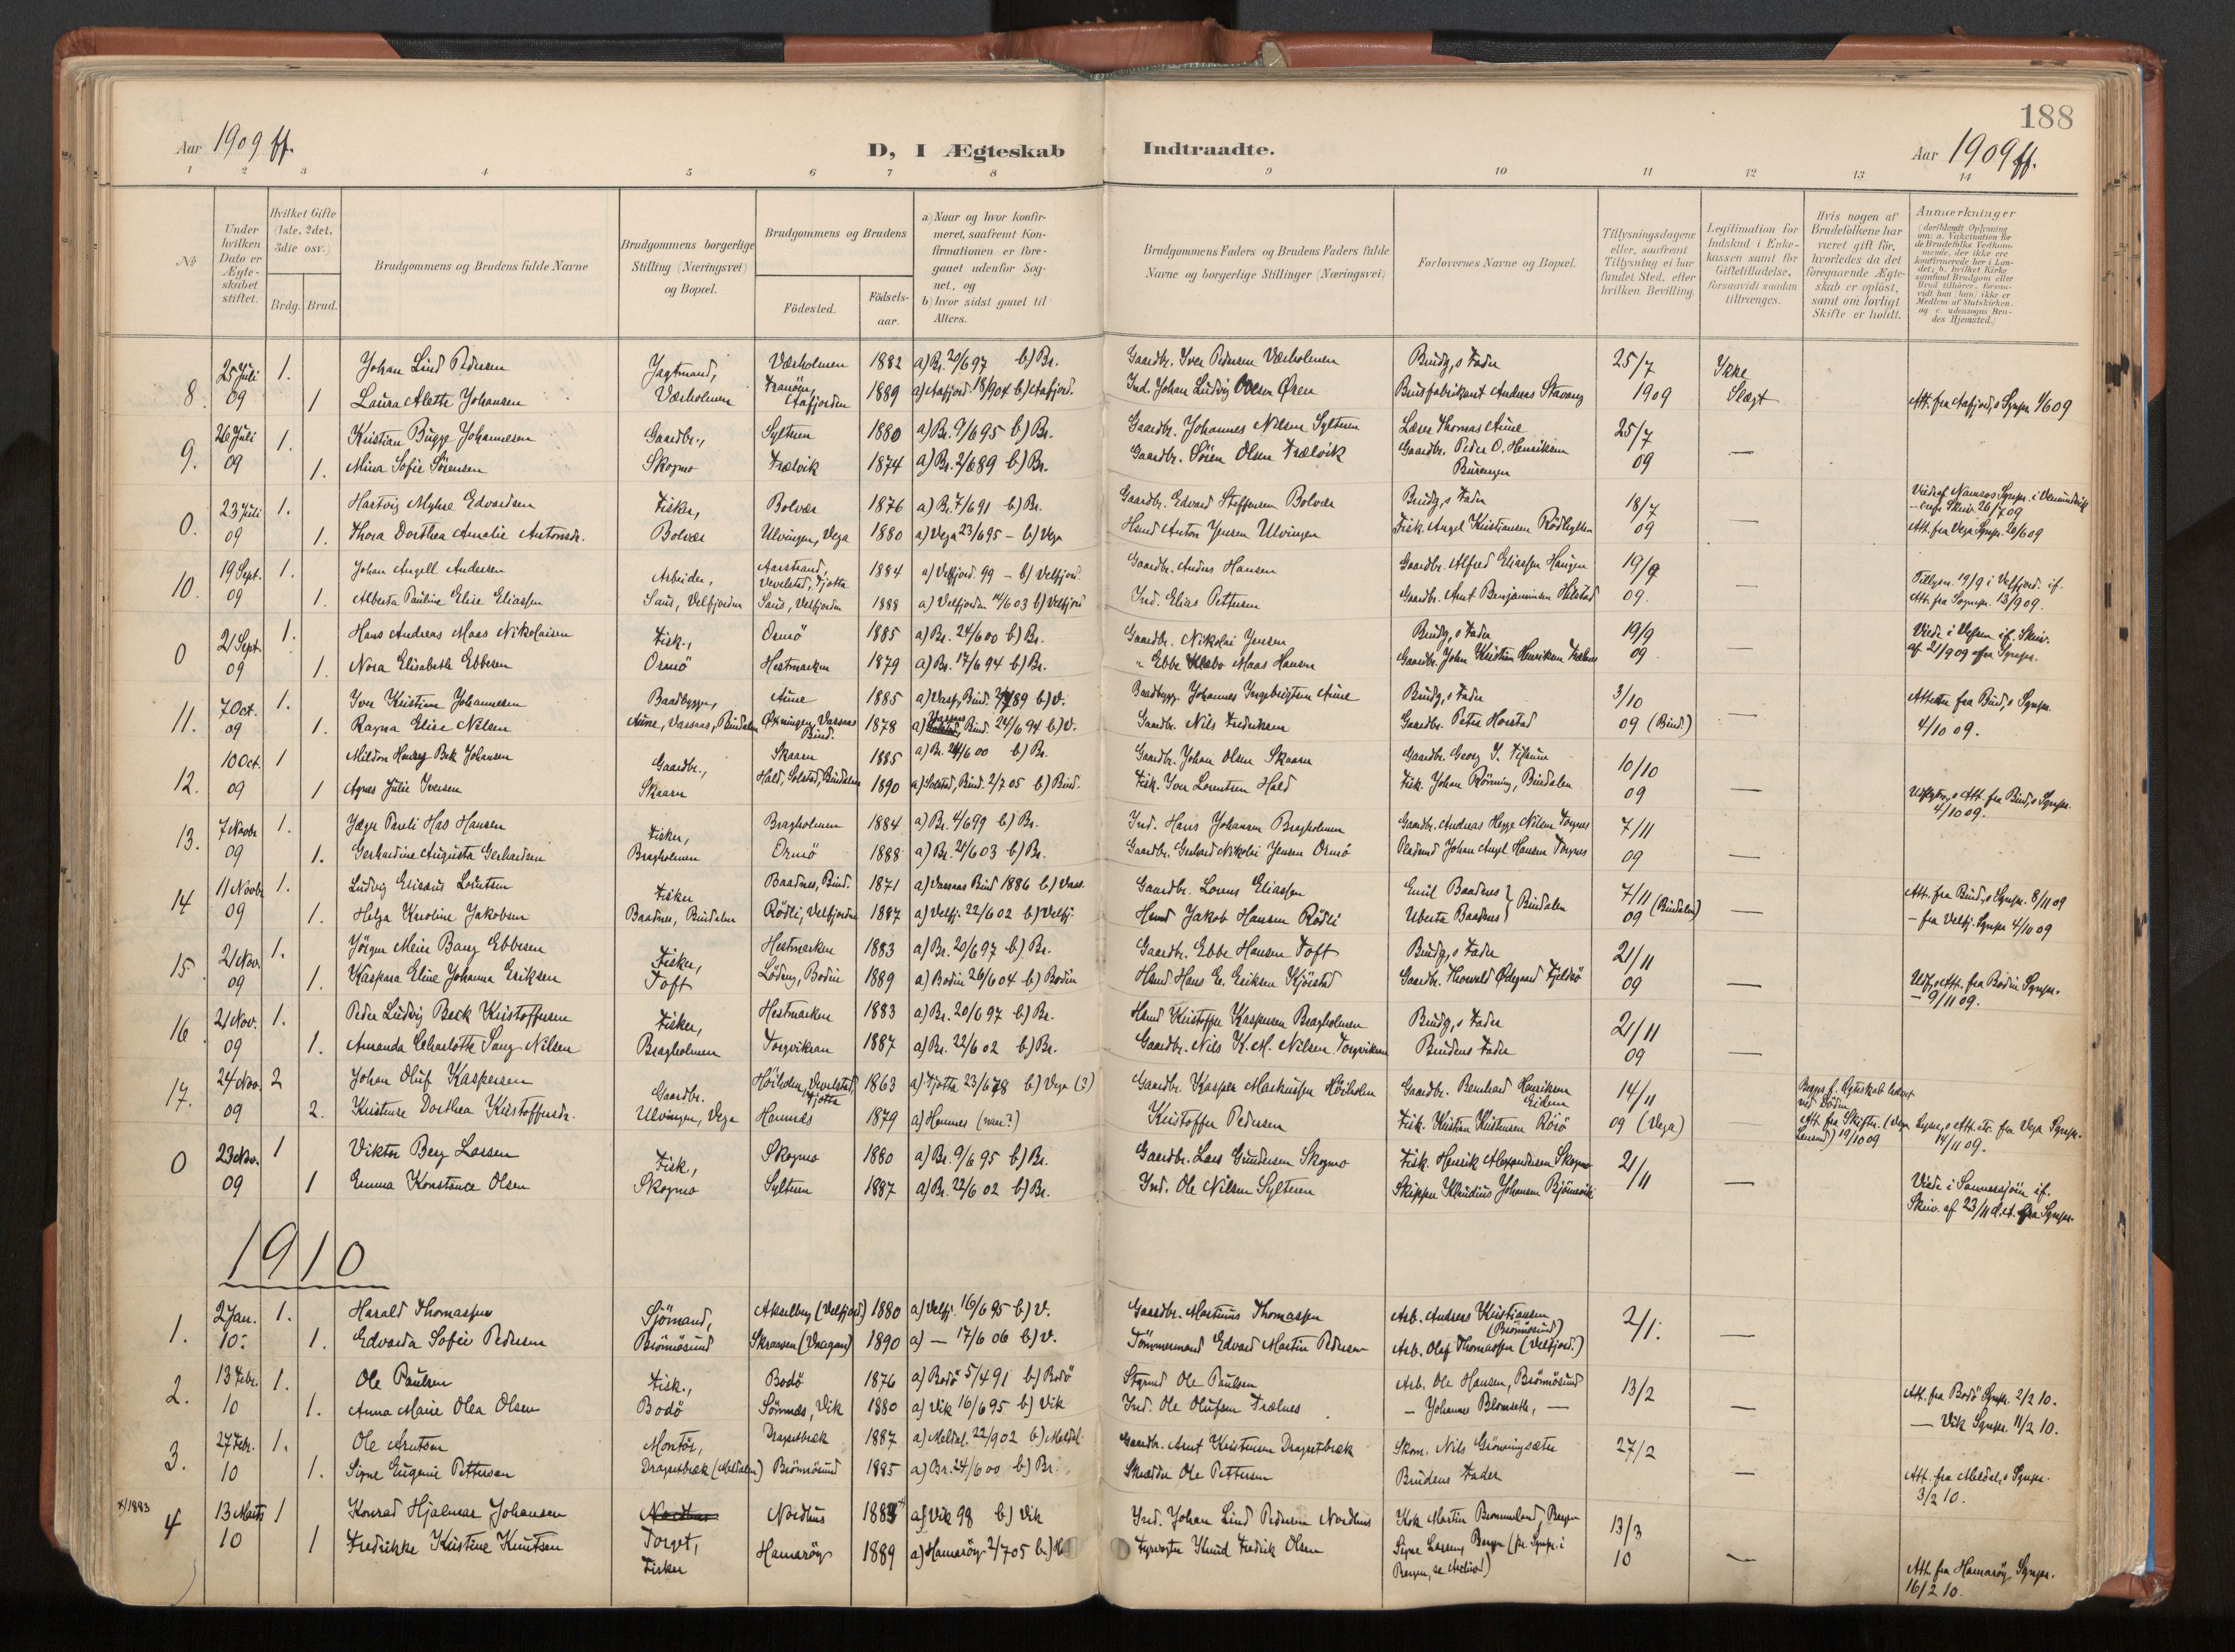 188
Aar 1909 ff.
D, I Ægteskab Indtraadte.
Aar 1909 ff.
1 2 3 4 5 6 7 8 9 10 11 12 13 14
No
Under hvilken Dato er Ægteskabet stiftet.
Hvilket Gifte (1ste, 2det, 3die osv.)
Brdg. Brud.
Brudgommens og Brudens fulde Navne
Brudgommens borgerlige Stilling (Næringsvei) og Bopæl.
Brudgommens og Brudens
Födested.
Födselsaar.
a) Naar og hvor konfirmeret, saafremt Konfirmationen er foregaaet udenfor Sognet, og
b) hvor sidst gaaet til Alters.
Brudgommens Faders og Brudens Faders fulde Navne og borgerlige Stillinger (Næringsvei)
Forlovernes Navne og Bopæl.
Tillysningsdagene eller, saafremt Tillysning ei har fundet Sted, efter hvilken Bevilling.
Legitimation for Indskud i Enkekassen samt for Giftetilladelse, forsaavidt saadan tiltrænges.
Hvis nogen af Brudefolkene har været gift för, hvorledes da det foregaaende Ægteskab er oplöst, samt om lovligt Skifte er holdt.
Anmerkninger (deriblandt Oplysning om: a. Vakcination for de Brudefolks Vedkommende, der ikke ere konfirmerede her i Landet; b. hvilket Kirkesamfund Brudgom eller Brud tilhörer, forsaavidt han (hun) ikke er Medlem af Statskirken, og c. udensogns Brudes Hjemsted.)
8. 25 Juli 09 1. Johan Lind Pedersen Jagtmand, Værholmen 1882 a) Br. 20/6 97 b) Br. Gaardbr. Iver Pedersen Værholmen Brudg,s Fader 25/7 Ikke
1 Laura Alette Johansen Værholmen Aafjorden 1889 a) Aafjord. 18/9 04 b) Aafjord. Ind. Johan Ludvig Øren Brusfabrikant Andreas Stavang 1909 Slægt Att. fra Aafjord,s Sgnpr. 1/6 09
9. 26 Juli 09 1. Kristian Bugge Johannesen Gaardbr., Sylteren 1880 a) Br. 9/6 95 b) Br. Gaardbr. Johannes Nilsen Sylteren Lærer Thomas Aune 25/7
1. Mina Sofie Sörensen Skogmo Trælvik 1874 a) Br. 2/6 89 b) Br. Gaardbr. Sören Olsen Trælvik Gaardbr. Peder O. Henriksen 09 —
0. 23 Juli 09 1. Hartvig Myhre Edvardsen Fisker, Bolvær 1876 a) Br. 7/6 91 b) Br. Gaardbr. Edvard Steffensen Bolvær Brudg,s Fader 18/7
1. Thora Dorthea Amalie Antonsdr. Bolvær Ulvingen, Vega 1880 a) Vega 23/6 95 – b) Vega Hsmd Anton Jensen Ulvingen Fisk. Angel Kristiansen 09 — Att. fra Vega Sgnpr. 20/6 09
10. 19 Sept. 09 1. Johan Angell Andersen Arbeider, Aarstrand, Vevelstad, Tjotta 1884 a) Velfjord. 99 – b) Velfjord. Gaardbr. Anders Hansen Gaardbr. Alfred Eliassen Haugen 19/9 Tillysn. 19/9 i Velfjord. if.
1. Alberta Pauline Elise Eliassen Saus, Velfjorden Saus, Velfjorden 1888 a) Velfjorden 14/6 03 b) Velfjord Ind. Elias Pettersen Gaardbr. Arnt Benjaminsen Hilstad 09. — Att. fra Sognpr. 13/9 09.
0 21 Sept. 09 1. Hans Andreas Maas Nikolaisen Fisk., Ormö 1885 a) Br. 24/6 00 b) Br. Gaardbr. Nikolai Jensen Brudg,s Fader 19/9 Viede i Vefsen if. Skriv.
1. Nora Elisabeth Ebbesen Ormö Hestmarken 1879 a) Br. 17/6 94 b) Br. " Ebbe Maas Hansen Gaardbr. John Kristian Henriksen 09. — af 21/9 09 fra Sgnpr.
11. 7 Oct. 09 1. Iver Kristian Johannesen Baadbygger, Aune 1885 b) V. Baadbygg. Johannes Ingebrigtsen Aune Brudg,s Fader 3/10 Attester fra Bind,s Sgnpr.
1. Ragna Elise Nilsen Aune, Vassaas, Bindalen Øxningen, Vassaas Bind. 1878 Bind. 24/6 94 b) V. Gaardbr. Nils Fredriksen Gaardbr. Peter Horstad 09 (Bind.) — 4/10 09.
12. 10 Oct. 09 1 Mildor Bek Johansen Gaardbr., Skaaren 1885 a) Br. 24/6 00 b) Br. Gaardbr. Johan Olsen Skaaren Gaardbr. Georg 10/10
1 Agnes Julie Iversen Skaaren Hald, Solstad, Bindalen 1890 a) Solstad, Bind. 2/7 05 b) Bind. Fisk. Iver Lorentsen Hald Fisk. Johan Rönning, Bindalen 09 — Att. fra Bind,s Sgnpr. 4/10 09.
13. 7 Novbr 09 1. Hansen Fisker, Bragholmen 1884 a) Br. 4/6 99 b) Br. Ind. Hans Johansen Bragholmen Gaardbr. Andreas Hegge Nilsen Torgnes 7/11
1. Gerhardine Augusta Gerhardsen Bragholmen Ormö 1888 a) Br. 21/6 03 b) Br. Gaardbr. Gerhard Nikolai Jensen Ormö Johan Angel Hansen Torgnes 09 —
14 11 Novbr 09 1. Ludvig Elisæus Lorntsen Fisker Baadnes, Bind. 1871 a) Vassaas Bind 1886 b) Vass. Gaardbr. Lorens Eliassen Emil Baadnes 7/11 (Bindalen) Att. fra Bind,s Sgnpr. 8/11 09
1. Helga Karoline Jakobsen Baadnes, Bindalen Rödli, Velfjorden 1887 a) Velfj. 22/6 02 b) Velfj. Hsmd Jakob Hansen Rödli Uberta Baadnes } Bindalen 09 — – fra Velfj. Sgnpr 4/10 09
15. 21 Nov. 09 1. Jörgen Meier Bang Ebbesen Fisker, Hestmarken 1883 a) Br. 20/6 97 b) Br. Gaardbr. Ebbe Hansen Toft Brudg,s Fader 21/11
1. Kaspara Eline Johanna Eriksen Toft Löding, Bodin 1889 a) Bodin 26/6 04 b) Bodin Hsmd Hans E. Eriksen Kjörstad Gaardbr. Thorvald Ødegaard 09 — Att. fra Bodin Sgnpr. – 9/11 09.
16 21 Nov. 09 1. Peder Ludvig Beck Kristoffersen Fisker, Hestmarken 1883 a) Br. 20/6 97 b) Br. Hsmd Kristoffer Kaspersen Bragholmen Brudg,s Fader 21/11
1. Amanda Charlotte Sang Nilsen Bragholmen Torgvikran 1887 a) Br. 22/6 02 b) Br. Gaardbr. Nils K. M. Nilsen Torgvikran Brudens Fader 09 —
17. 24 Nov. 09 2 Johan Oluf Kaspersen Gaardbr. Höiholm, Vevelstad, Tjotta 1863 a) Tjotta 23/6 78 b) Vega (?) Gaardbr. Kasper Markussen Höiholm Gaardbr. Bernhard Henriksen Eidem 14/11 Begges f. Ægteskab ved Döden
2. Kristense Dorthea Kristoffersdr. Ulvingen, Vega Hemnæs 1879 a) Hemnes Kristoffer Pedersen Fisk. Kristian Kristensen Röiö 09 (Vega) — Att. fra Skiftr. (Vega 19/10 09 Att. etc. fra Vega Sgnpr. 14/11 09.
0 23 Nov. 09 1 Viktor Berg Larsen Fisk, Skogmo 1880 a) Br. 9/6 95 b) Br. Gaardbr. Lars Gundersen Skogmo Fisk. Henrik Alexandersen Skogmo 21/11
1 Emma Konstance Olsen Skogmo Sylteren 1887 a) Br. 22/6 02 b) Br. Ind. Ole Nilsen Sylteren Skipper Klaudius Johansen — Viede i Sannessjöen if. Skriv. af 23/11 fra Sgnpr.
1910
1. 2 Jan. 10. 1. Harald Thomassen Sjömand, Akselberg (Velfjord) 1880 a) Velfj. 16/6 95 b) V. Gaardbr. Martinus Thomassen Arb. Andreas Kristiansen (Brönnösund) 2/1.
1. Edvarda Sofie Pedersen Brönnösund Skraaven (Vaagan) 1890 a) — 17/6 06 b) V. Tömmermand Edvard Martin Pedersen Arb. Olaf Thomassen (Velfjord.) —
2. 13 Febr. 10 1. Ole Paulsen Fisk., Bodö 1876 a) Bodö 5/4 91 b) Bodö Ole Paulsen Arb. Ole Hansen, Brönnösund 13/2 Att. fra Bodö Sgnpr. 2/2 10.
1. Anna Marie Olea Olsen Bodö Sömnæs, Vik 1880 a) Vik 16/6 95 b) Vik Ind. Ole Olufsen Trælnes – Johannes Blomseth, — — — Vik Sgnpr. 11/2 10.
3. 27 Febr. 10 1. Ole Arntsen Montör, Dragsetbæk 1887 a) Meldal. 22/9 02 b) Meldal Gaardbr. Arnt Kristensen Dragsetbæk Skom. Nils Grönningsæter 27/2
1. Signe Eugenie Pettersen Dragsetbæk (Meldalen) Brönnösund 1885 a) Br. 24/6 00 b) Br. Skrædder Ole Pettersen Brudens Fader — Att. fra Meldal,s Sgnpr. 3/2 10.
x) 1883
4 13 Marts 10 1 Konrad Hjalmar Johansen Nordhus 1883 x) a) Vik 98 b) Vik Ind. Johan Lind Pedersen Nordhus Kok Martin Brommeland, Bergen 13/3
1 Fredrikke Kristine Knutsen Torget, Fisker Hamaröy 1889 a) Hamaröy 2/7 05 b) H Fyrvogter Knud Fredrik Olsen Signe Larsen, Bergen (fr. Sgnpr. i Bergen, se Archivet) 10 — Att. fra Hamaröy Sgnpr. 16/2 10.